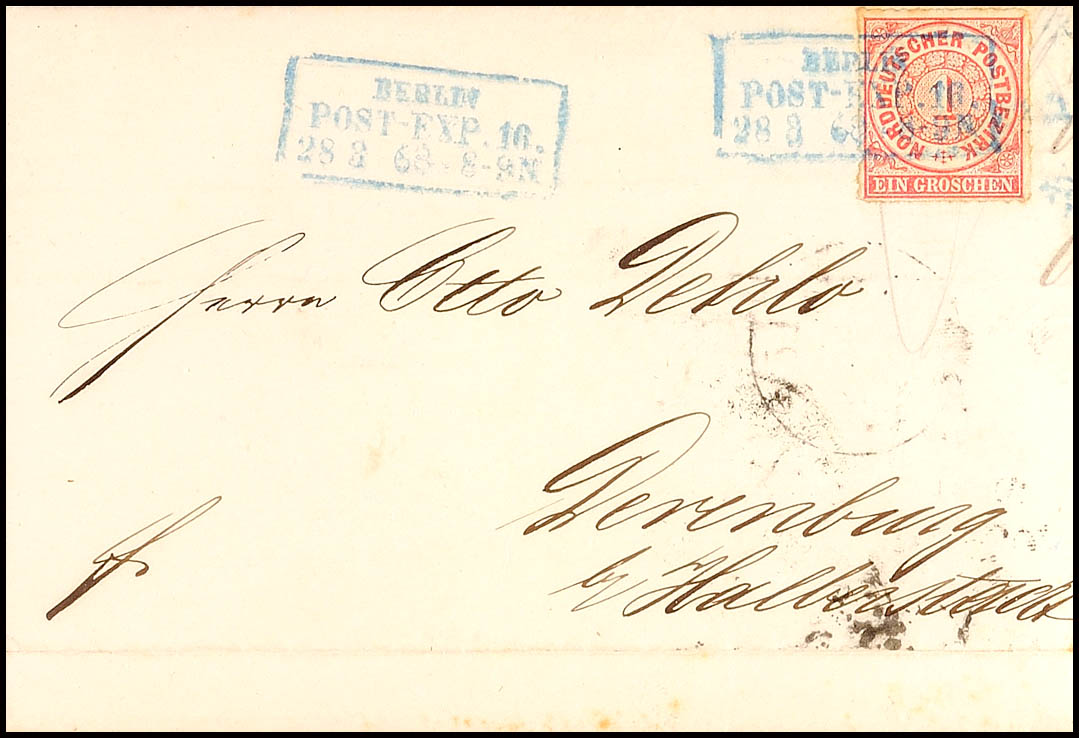 BERLIN
POST-EXP. 16.
28 3 68 8-9N
BERLIN
POST-EXP. 16
28 3 68
NORDDEUTSCHER POSTBEZIRK
1
EIN GROSCHEN
Herrn Otto Dehlo
Derenburg
b/ Halberstadt
fr